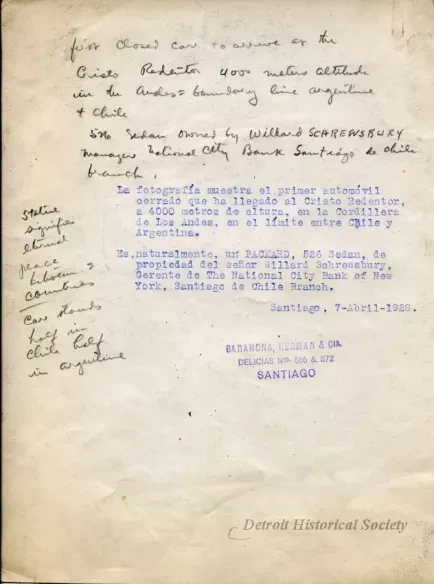 first closed car to arrive at the
Cristo Redentor 4000 meters altitude
in the Andes = boundary line argentine
+ Chile
526 Sedan owned by Willard SCHREWSBURY
manager National City Bank Santiago de Chile
branch.
La fotografía muestra el primer automóvil
cerrado que ha llegado al Cristo Redentor,
a 4000 metros de altura, en la Cordillera
de Los Andes, en el límite entre Chile y
Argentina.
Es, naturalmente, un PACKARD, 526 Sedan, de
propiedad del señor Willard Schrewsbury,
Gerente de The National City Bank of New
York, Santiago de Chile Branch.
Santiago, 7-Abril-1928.
Statue
signifies
eternal
peace
between 2
countries
car stands
half in
Chile half
in argentine
BARAHONA, & CIA.
DELICIAS Nos. & 872
SANTIAGO
Detroit Historical Society